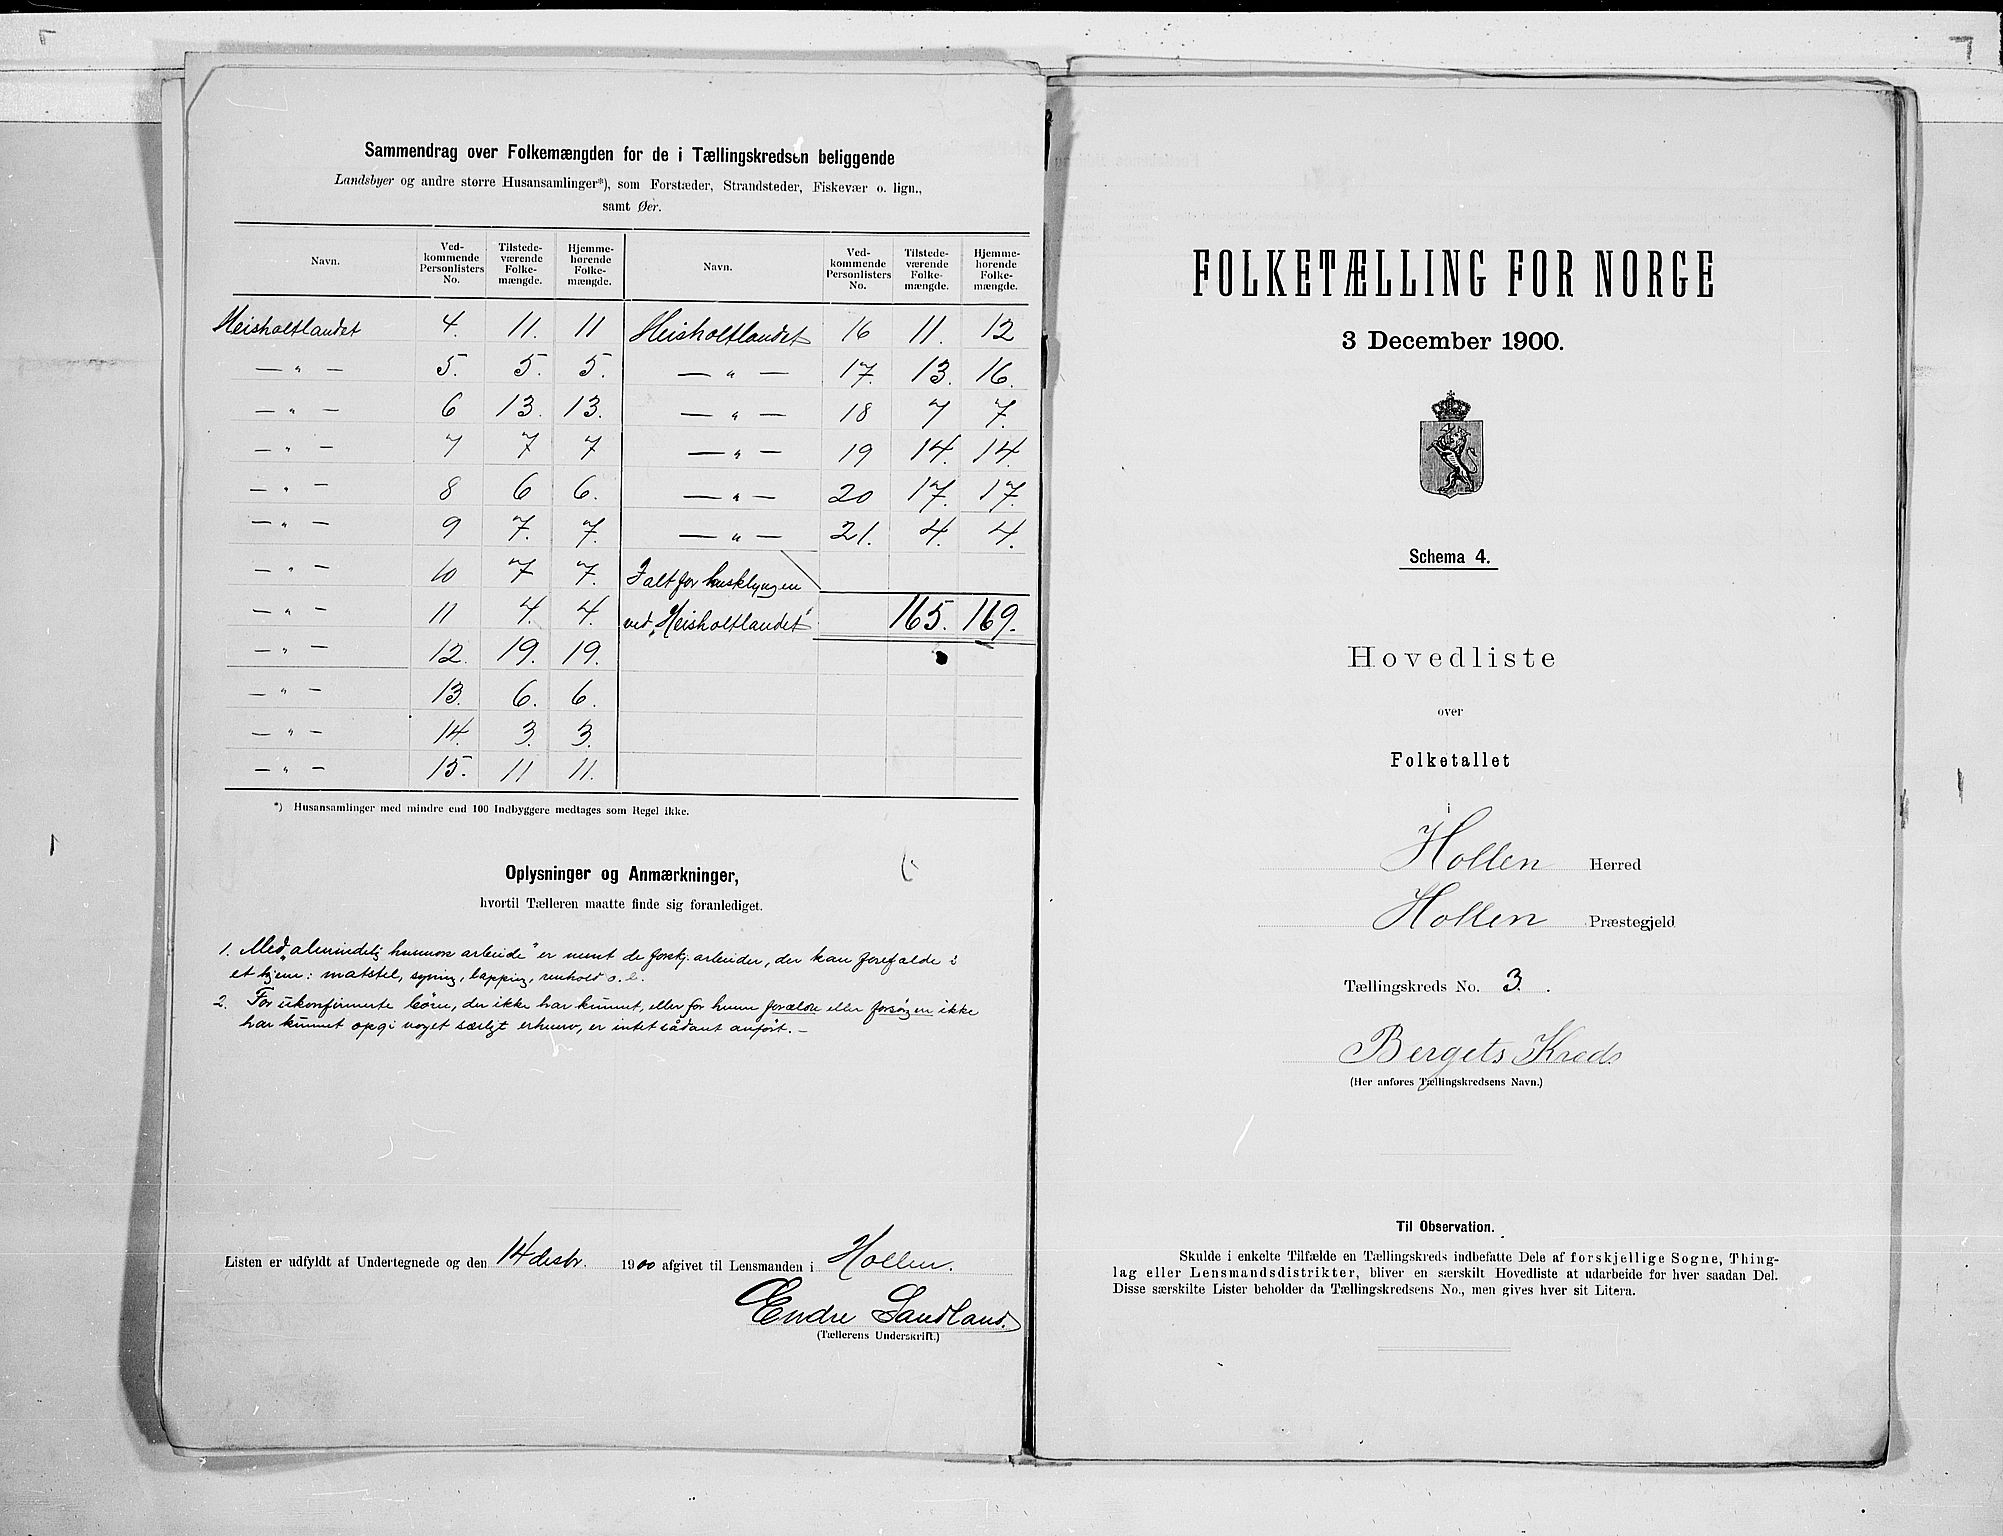 Sammendrag over Folkemængden for de i Tællingskredsen beliggende
Landsbyer og andre større Husansamlinger*), som Forstæder, Strandsteder, Fiskevær o. lign.,
samt Øer.
Navn. Ved-kommende Personlisters No. Tilstede-værende Folke-mængde. Hjemme-hørende Folke-mængde. Navn. Ved-kommende Personlisters No. Tilstede-værende Folke-mængde. Hjemme-hørende Folke-mængde.
Heisholtlandet 4. 11. 11 Heisholtlandet 16 11. 12
— " — 5. 5. 5. — " — 17. 13. 16.
— " — 6 13. 13. — " — 18 7 7.
— " — 7 7 7 — " — 19 14. 14.
— " — 8 6 6. — " — 20 17. 17.
— " — 9 7. 7. — " — 21. 4. 4.
— " — 10 7 7. Ialt for husklyngen
— " — 11 4. 4. ved „Heisholtlandet" 165. 169.
— " — 12. 19. 19.
— " — 13. 6. 6.
— " — 14. 3. 3.
— " — 15. 11 11.
*) Husansamlinger med mindre end 100 Indbyggere medtages som Regel ikke.
Oplysninger og Anmærkninger,
hvortil Tælleren maatte finde sig foranlediget.
1. Med „almindelig husmors arbeide" er ment de forskj. arbeider, der kan forefalde i
et hjem: matstel, syning, lapping, renhold o. l.
2. For ukonfirmerte børn, der ikke har kunnet, eller for hvem forældre eller forsørgeren ikke
har kunnet opgi noget særligt erhverv, er intet sådant anført. —
Listen er udfyldt af Undertegnede og den 14 desbr. 1900 afgivet til Lensmanden i Hollen.
Endre Sandland.
(Tællerens Underskrift.)
FOLKETÆLLING FOR NORGE
3 December 1900.
Schema 4.
Hovedliste
over
Folketallet
i
Hollen Herred
Hollen Præstegjeld
Tællingskreds No. 3.
Bergets Kreds
(Her anføres Tællingskredsens Navn.)
Til Observation.
Skulde i enkelte Tilfælde en Tællingskreds indbefatte Dele af forskjellige Sogne, Thing-
lag eller Lensmandsdistrikter, bliver en særskilt Hovedliste at udarbeide for hver saadan Del.
Disse særskilte Lister beholder da Tællingskredsens No., men gives hver sit Litera.